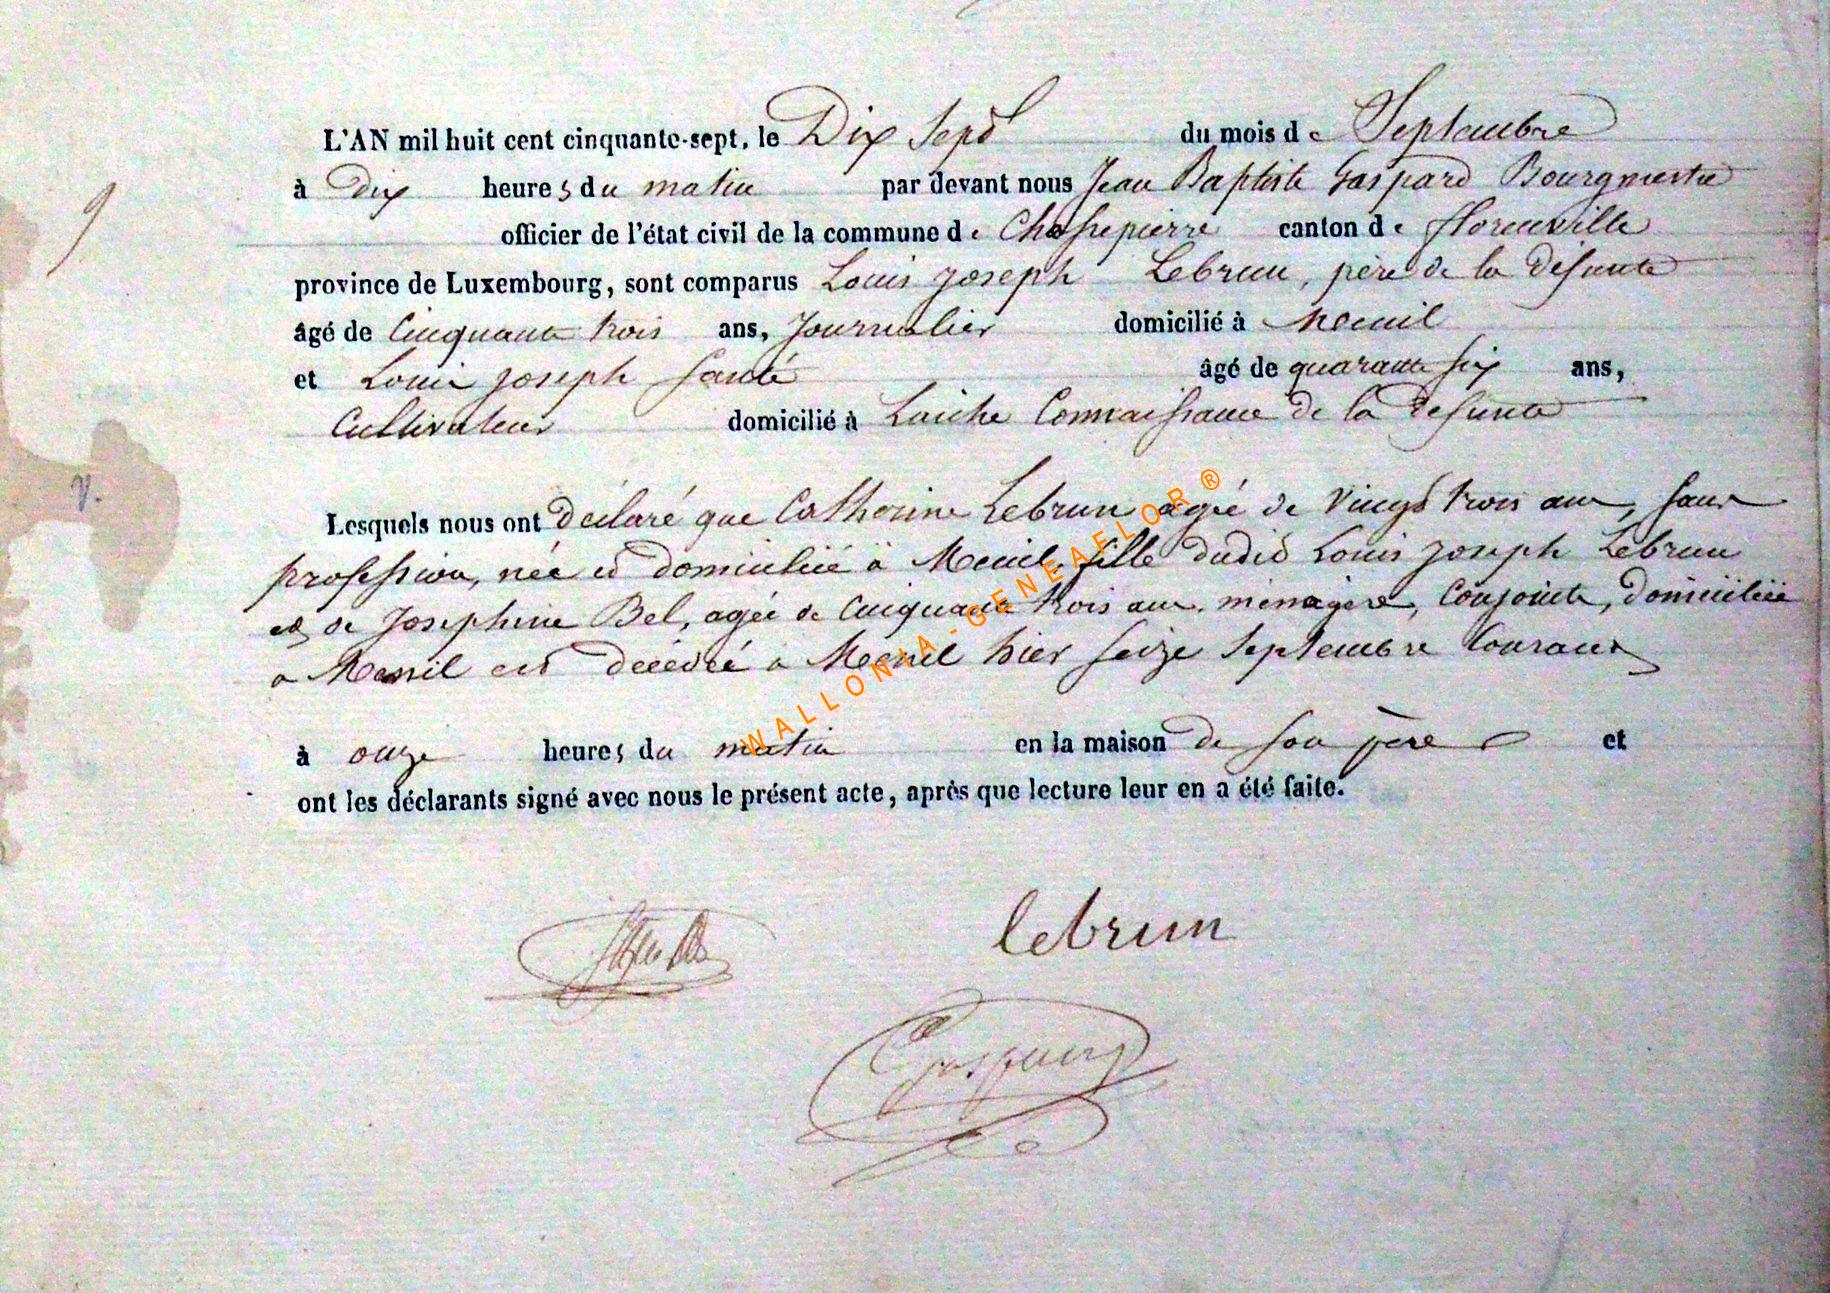 L'AN mil huit cent cinquante-sept, le Dix Sept du mois de Septembre
9
à Dix heures du matin par devant nous Jean Baptiste Gaspard Bourgmestre
officier de l'état civil de la commune de Chassepierre canton de florenville
province de Luxembourg, sont comparus Louis joseph Lebrun, père de la défunte
âgé de Cinquante trois ans, Journalier domicilié à Menil
et Louis joseph âgé de quarante six ans,
Cultivateur domicilié à Laiche Connaissance de la defunte
V.
Lesquels nous ont déclaré que Catherine Lebrun agée de Vingt trois ans, sans
profession, née et domiciliée à Menil, fille dudit Louis joseph Lebrun
et de Josephine Bel, agée de Cinquante trois ans, ménagère, Conjointe, domiciliée
a Menil est décédé a Menil hier seize Septembre Courant
WALLONIA-GENEAFLOR ®
à onze heures du matin en la maison de son père et
ont les déclarants signé avec nous le présent acte, après que lecture leur en a été faite.
lebrun